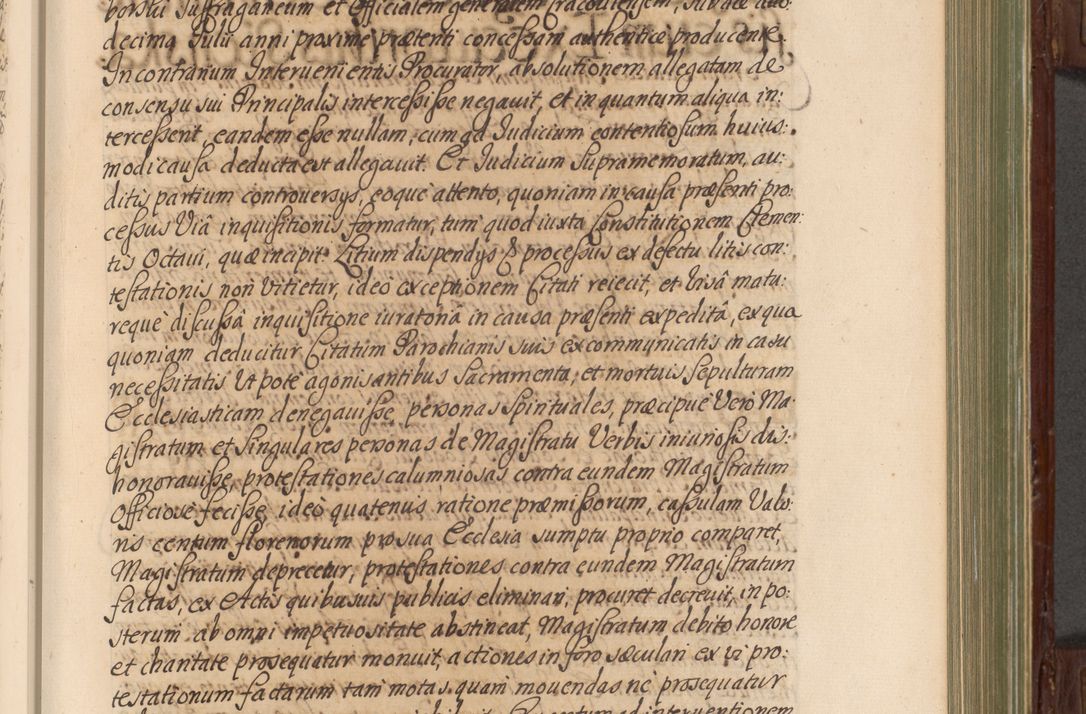 decima Julii anni proxime præteriti concessam authenticæ producente.
In contrarium Intervenientis Procurator, absolutionem allegatam de
consensu sui Principalis intercessisse negavit, et in quantum aliqua in:
tercesserit, eandem esse nullam, cum ad Judicium contentiosum huius:
modi causa deducta est allegavit. Et Judicium Supramemoratum, au:
ditis partium controversijs, eoque attento, quoniam in causa præsenti pro:
cessus Viâ inquisitionis formatur, tum quod iuxta Constitutionem Clemen:
tis Octavi, quæ incipit Litium dispendijs & processus ex defectu litis con:
testationis non vitietur, ideo exceptionem Citati reiecit, et Visâ matu:
reque discussâ inquisitione iuratoriâ in causa præsenti expeditâ, ex qua
quoniam deducitur Citatum Parochianis suis excommunicatis in casu
necessitatis Ut pote agonisantibus Sacramenta, et mortuis Sepulturam
Ecclesiasticam denegavisse, personas Spirituales, præcipue Vero Ma:
gistratum et Singulares personas de Magistratu Verbis iniuriosis dis:
honoravisse, protestationes calumniosas contra eundem Magistratum
Officiose fecisse, ideo quatenus ratione præmissorum, cassulam Valo:
ris centum florenorum pro sua Ecclesia sumptu proprio comparet,
Magistratum deprecetur, protestationes contra eundem Magistratum
factas, ex Actis quibusvis publicis eliminari, procuret decrevit, in po:
sterum ab omni impetuositate abstineat, Magistratum debito honore
et charitate prosequatur monuit, actiones in foro sæculari ex vi pro:
testationum factarum tam motas quam movendas ne prosequatur